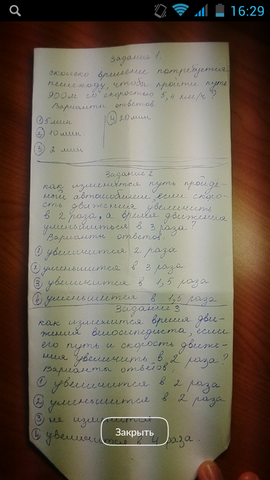 16:29
Задание 1.
сколько времени потребуется
пешеходу, чтобы пройти путь
900м со скоростью 5,4 км/ч?
Варианты ответов.
① 5 мин ④ 20 мин
② 10 мин
③ 2 мин
Задание 2
как изменится путь пройде-
ный автомобилем, если ско-
сть движения увеличить
в 2 раза, а время движения
уменьшиться в 3 раза?
Варианты ответов.
① увеличится 2 раза
② уменьшится в 3 раза
③ увеличится в 1,5 раза
④ уменьшится в 1,5 раза
Задание 3
как изменится время дви-
жения велосипедиста, если
его путь и скорость движе-
ния увеличить в 2 раза?
Варианты ответов.
① увеличится в 2 раза
② уменьшиться в 2 раза
③ не изменится
④ увеличится в 4 раза.
Закрыть